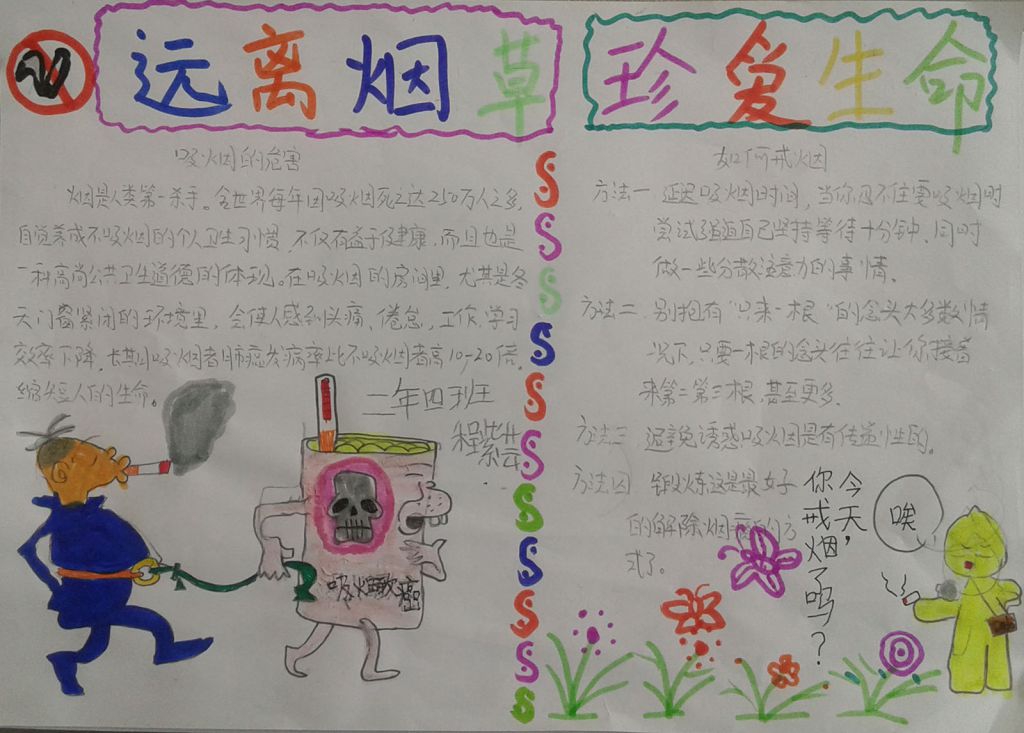 远离烟草
珍爱生命
吸烟的危害
烟是人类第一杀手。全世界每年因吸烟死亡达250万人之多,
自觉养成不吸烟的个人卫生习惯,不仅有益于健康,而且也是
一种高尚公共卫生道德的体现。在吸烟的房间里,尤其是冬
天门窗紧闭的环境里,会使人感到头痛、倦怠,工作、学习
效率下降,长期吸烟者肺癌发病率比不吸烟者高10-20倍,
缩短人的生命。
二年四班
程紫芸
吸烟致癌
如何戒烟
方法一 延迟吸烟时间,当你忍不住要吸烟时
尝试强迫自己坚持等待十分钟,同时
做一些分散注意力的事情。
方法二、别抱有"只来一根"的念头大多数情
况下,只要一根的念头往往让你接着
来第二第三根,甚至更多。
方法三 避免诱惑吸烟是有传递性的。
方法四 锻炼这是最好
的解除烟瘾的方
式了。
今天,
你戒烟了吗?
唉